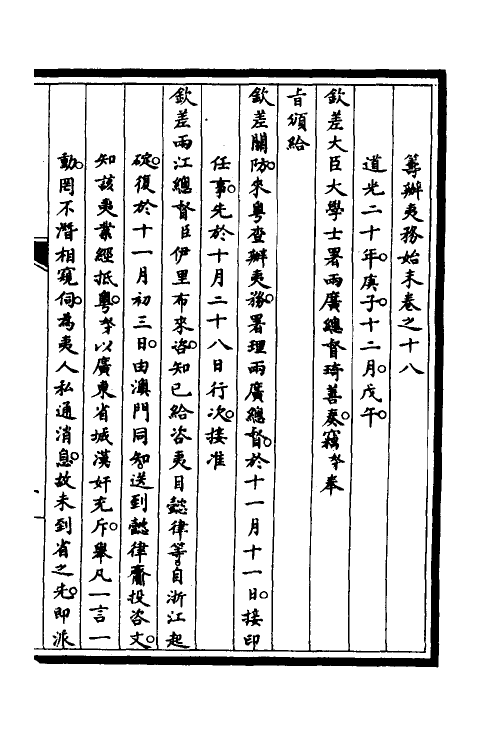 籌辦夷務始末卷之十八
道光二十年。庚子。十二月。戊午。
欽差大臣大學士署兩廣總督琦善奏。竊奴奉
旨頒給
欽差關防。來粵查辦夷務。署理兩廣總督。於十一月十一日。接印
任事。先於十月二十八日行次。接准
欽差兩江總督臣伊里布來咨。知已給咨夷目懿律等。自浙江起
碇。復於十一月初三日。由澳門同知送到懿律齎投咨文。
知該夷業經抵粵。奴以廣東省城漢奸充斥。舉凡一言一
動。罔不潛相窺伺。為夷人私通消息。故未到省之先。即派